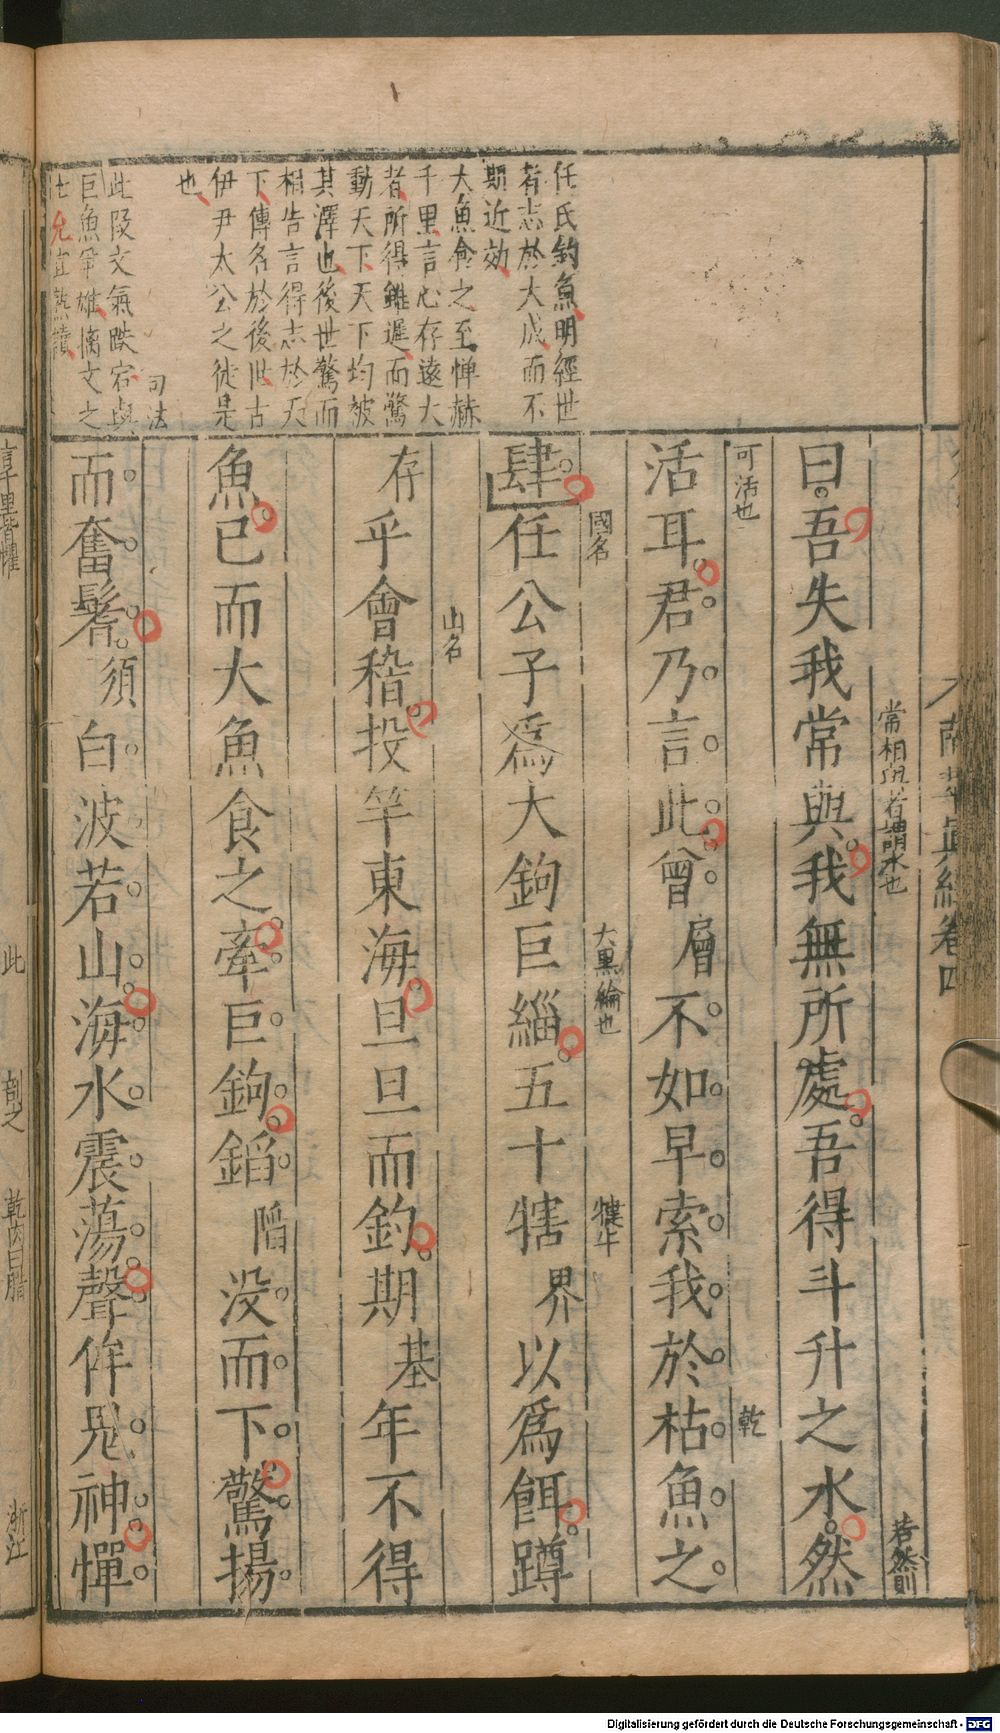 南華真經卷四
常相與者謂水也
若然則
曰吾失我常與我無所處吾得斗升之水然
可活也
乾
活耳君乃言此曾層不如早索我於枯魚之
肆
國名
大黑綸也
犍牛
任公子爲大鉤巨緇五十犗界以爲餌蹲
山名
存乎會稽投竿東海旦旦而釣期基年不得
魚已而大魚食之牽巨鉤錎陷没而下驚揚
而奮鬐須白波若山海水震蕩聲侔鬼神憚
任氏釣魚明經世
者志於大成而不
期近効
大魚食之至惮赫
千里言心存遠大
者所得雖遲而驚
動天下天下均被
其澤也後世驚而
相告言得志於天
下傳名於後世古
伊尹太公之徒是
也
句法
此段文氣跌宕與
巨魚爭雄摛文之
士允宜熟讀
千里皆懼
此
制之
乾肉曰腊
浙江
Digitalisierung gefördert durch die Deutsche Forschungsgemeinschaft - DFG